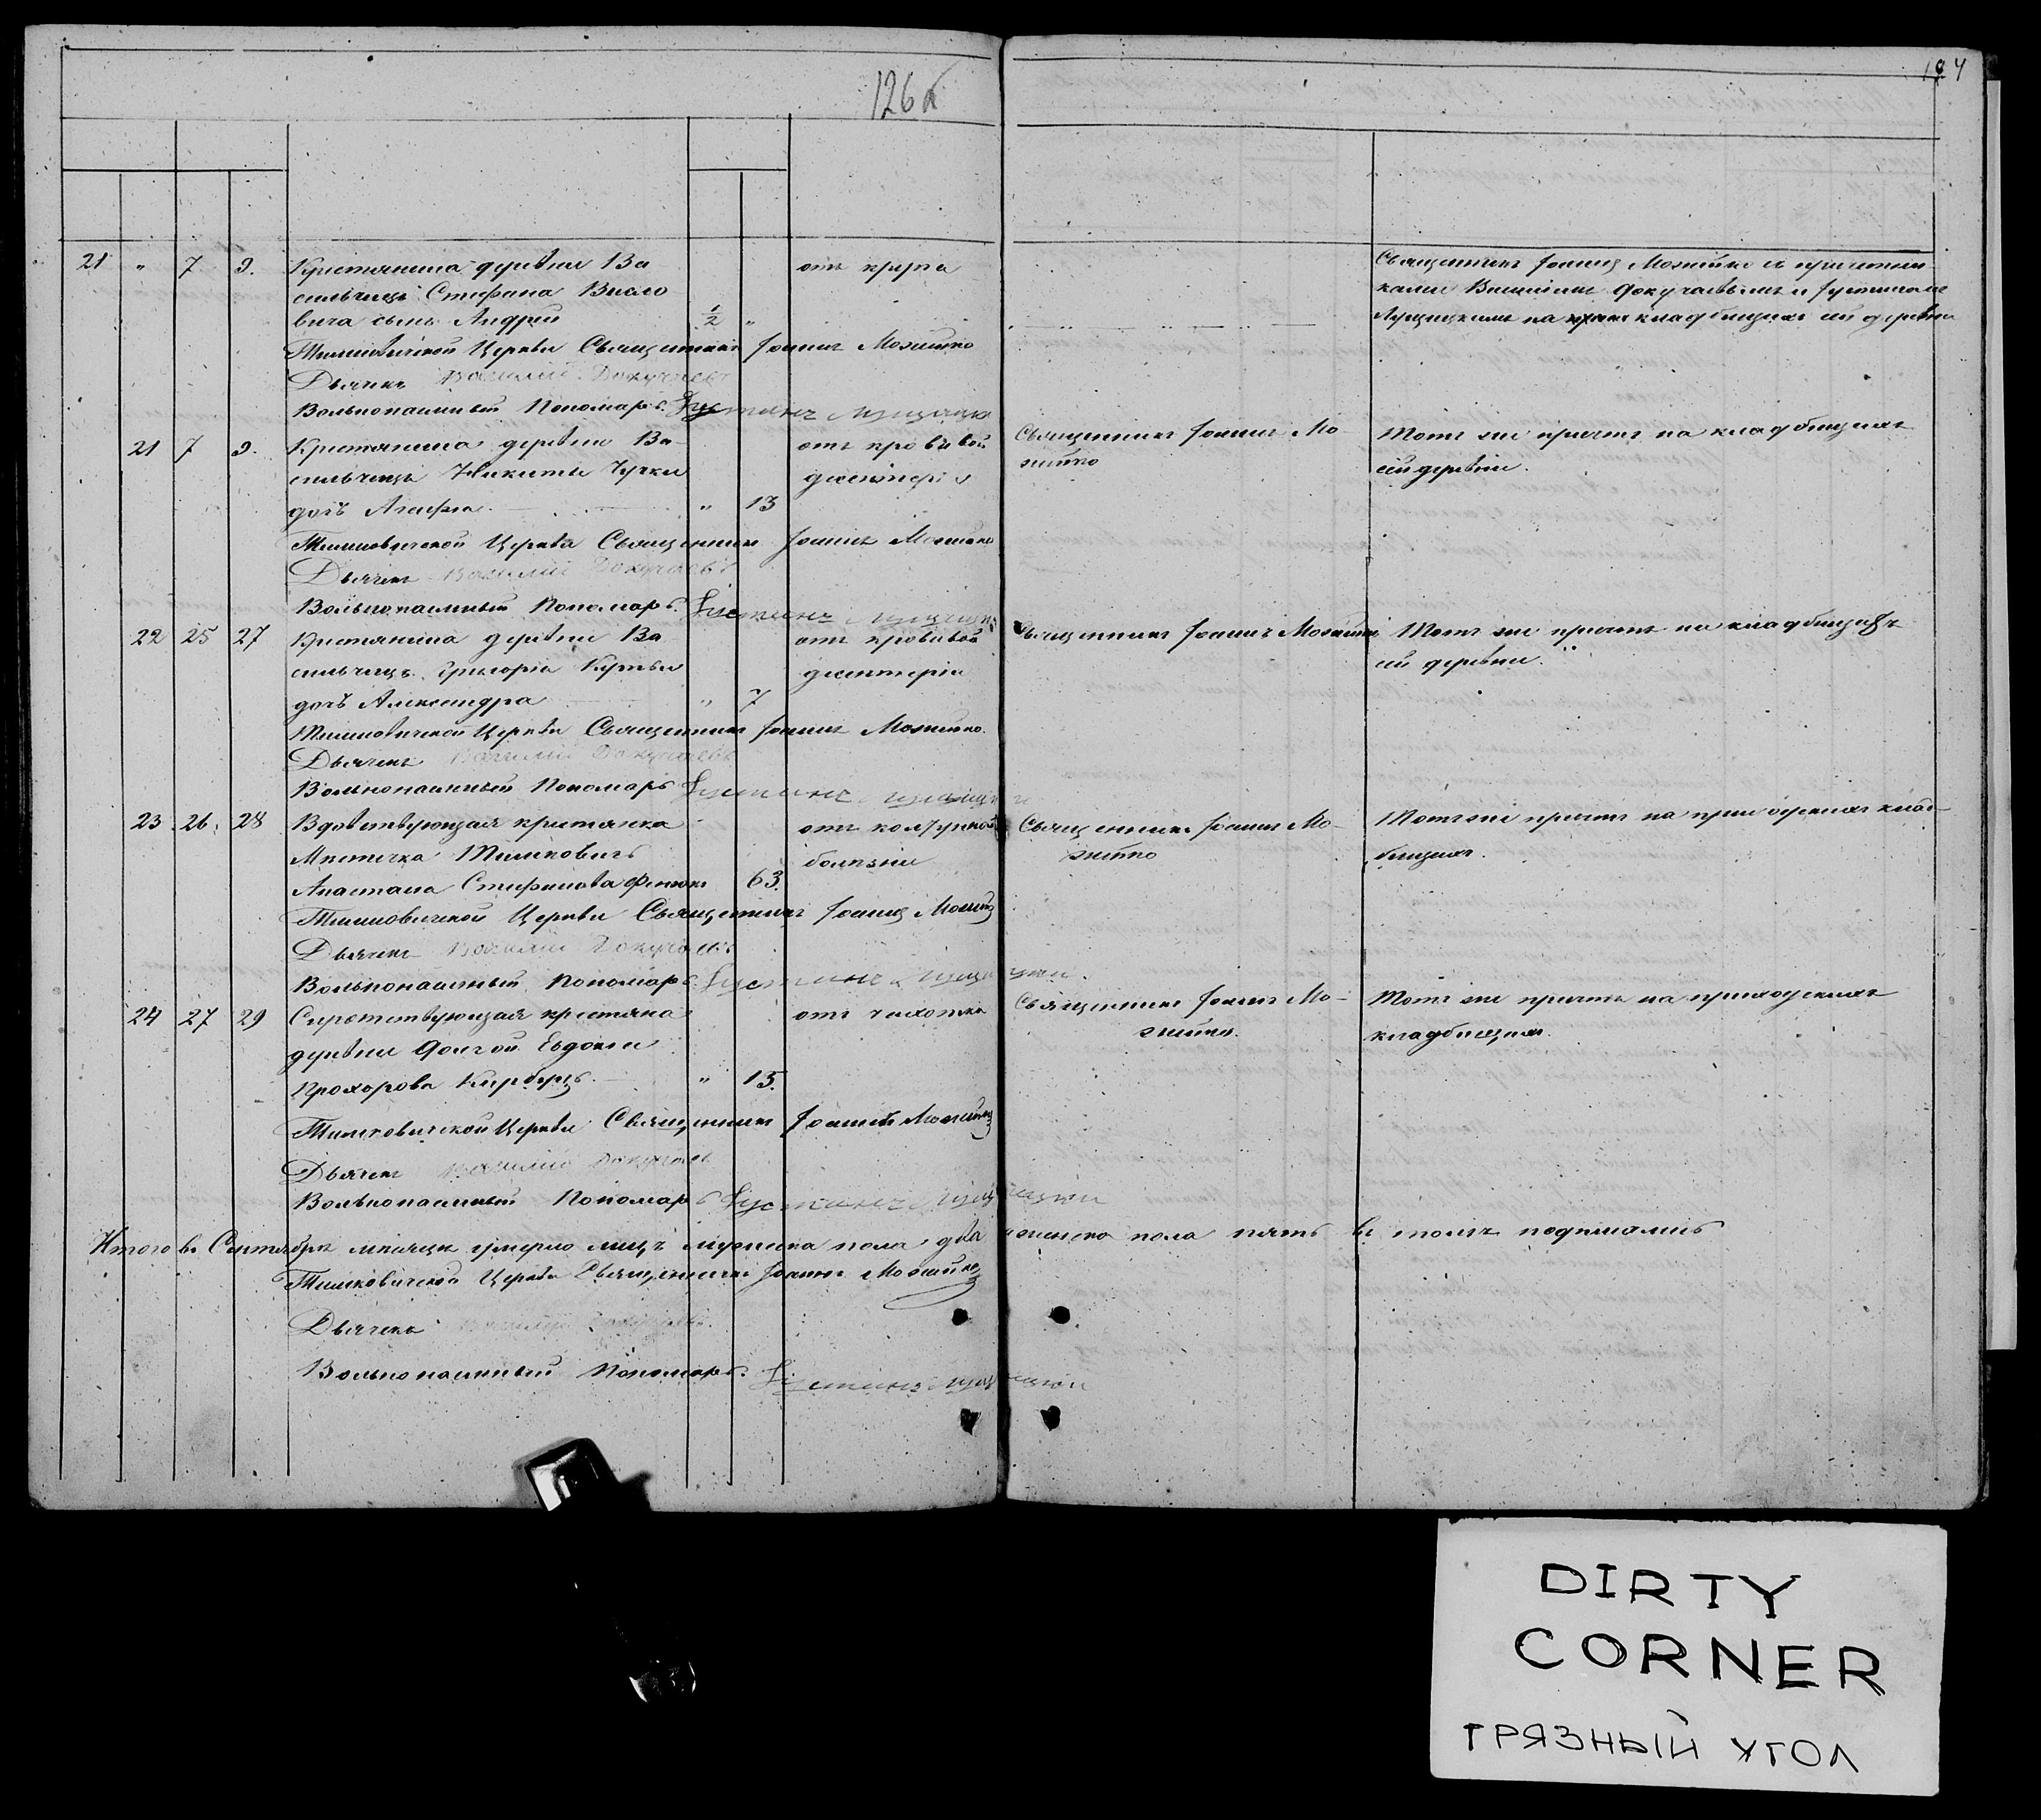 126б
124
21 " 7 9. Крестьянина деревни Ва
сильчицъ Стефана Высло
вича сынъ Андрей ½ "
отъ крупа
Священникъ Іоаннъ Можейко съ причетни
ками Василіемъ Докучаевымъ и Іустиномъ
Лущицкимъ на кладбищахъ сей деревни
Тимковичской Церкви Священникъ Іоаннъ Можейко
Дьячекъ Василій Докучаевъ
Вольнонаемный Пономарь Іустинъ Лущицкій
21 7 9. Крестьянина деревни Ва-
сильчицъ Никиты Чучки
дочь Агафія " 13
отъ кровавой
дисентеріи
Священникъ Іоаннъ Мо-
жейко
Тотъ же причтъ на кладбищахъ
сей деревни.
Тимковичской Церкви Священникъ Іоаннъ Можейко
Дьячекъ Василій Докучаевъ
Вольнонаемный Пономарь Іустинъ Лущицкій
22 25 27 Крестьянина деревни Ва
сильчицъ Григорія
дочь Александра " 7
отъ кровавой
дисентеріи
Священникъ Іоаннъ Можейко
Тотъ же причтъ на кладбищахъ
сей деревни.
Тимковичской Церкви Священникъ Іоаннъ Можейко.
Дьячекъ Василій Докучаевъ
Вольнонаемный Пономарь Іустинъ Лущицкій
23 26 28 Вдовствующая крестьянка
Мѣстечка Тимковичъ
Анастасія Стефанова 63.
отъ
болѣзни
Священникъ Іоаннъ Мо-
жейко
Тотъ же причтъ на приходскихъ клад-
бищахъ.
Тимковичской Церкви Священникъ Іоаннъ Можейко
Дьячекъ Василій Докучаевъ
Вольнонаемный Пономарь Іустинъ Лущицкій
24 27 29 Сиротствующая крестьянка
деревни Долгой Евдокія
Прохорова " 15.
отъ чахотки
Священникъ Іоаннъ Мо-
жейко.
Тотъ же причтъ на приходскихъ
кладбищахъ.
Тимковичской Церкви Священникъ Іоаннъ Можейко
Дьячекъ Василій Докучаевъ
Вольнонаемный Пономарь Іустинъ Лущицкій
Итого въ Сентябрѣ мѣсяцѣ умерло лицъ мужеска пола два женска пола пять въ томъ подписались
Тимковичской Церкви Священникъ Іоаннъ Можейко
Дьячекъ Василій Докучаевъ.
Вольнонаемный Пономарь Іустинъ Лущицкій
DIRTY
CORNER
ГРЯЗНЫЙ УГОЛ